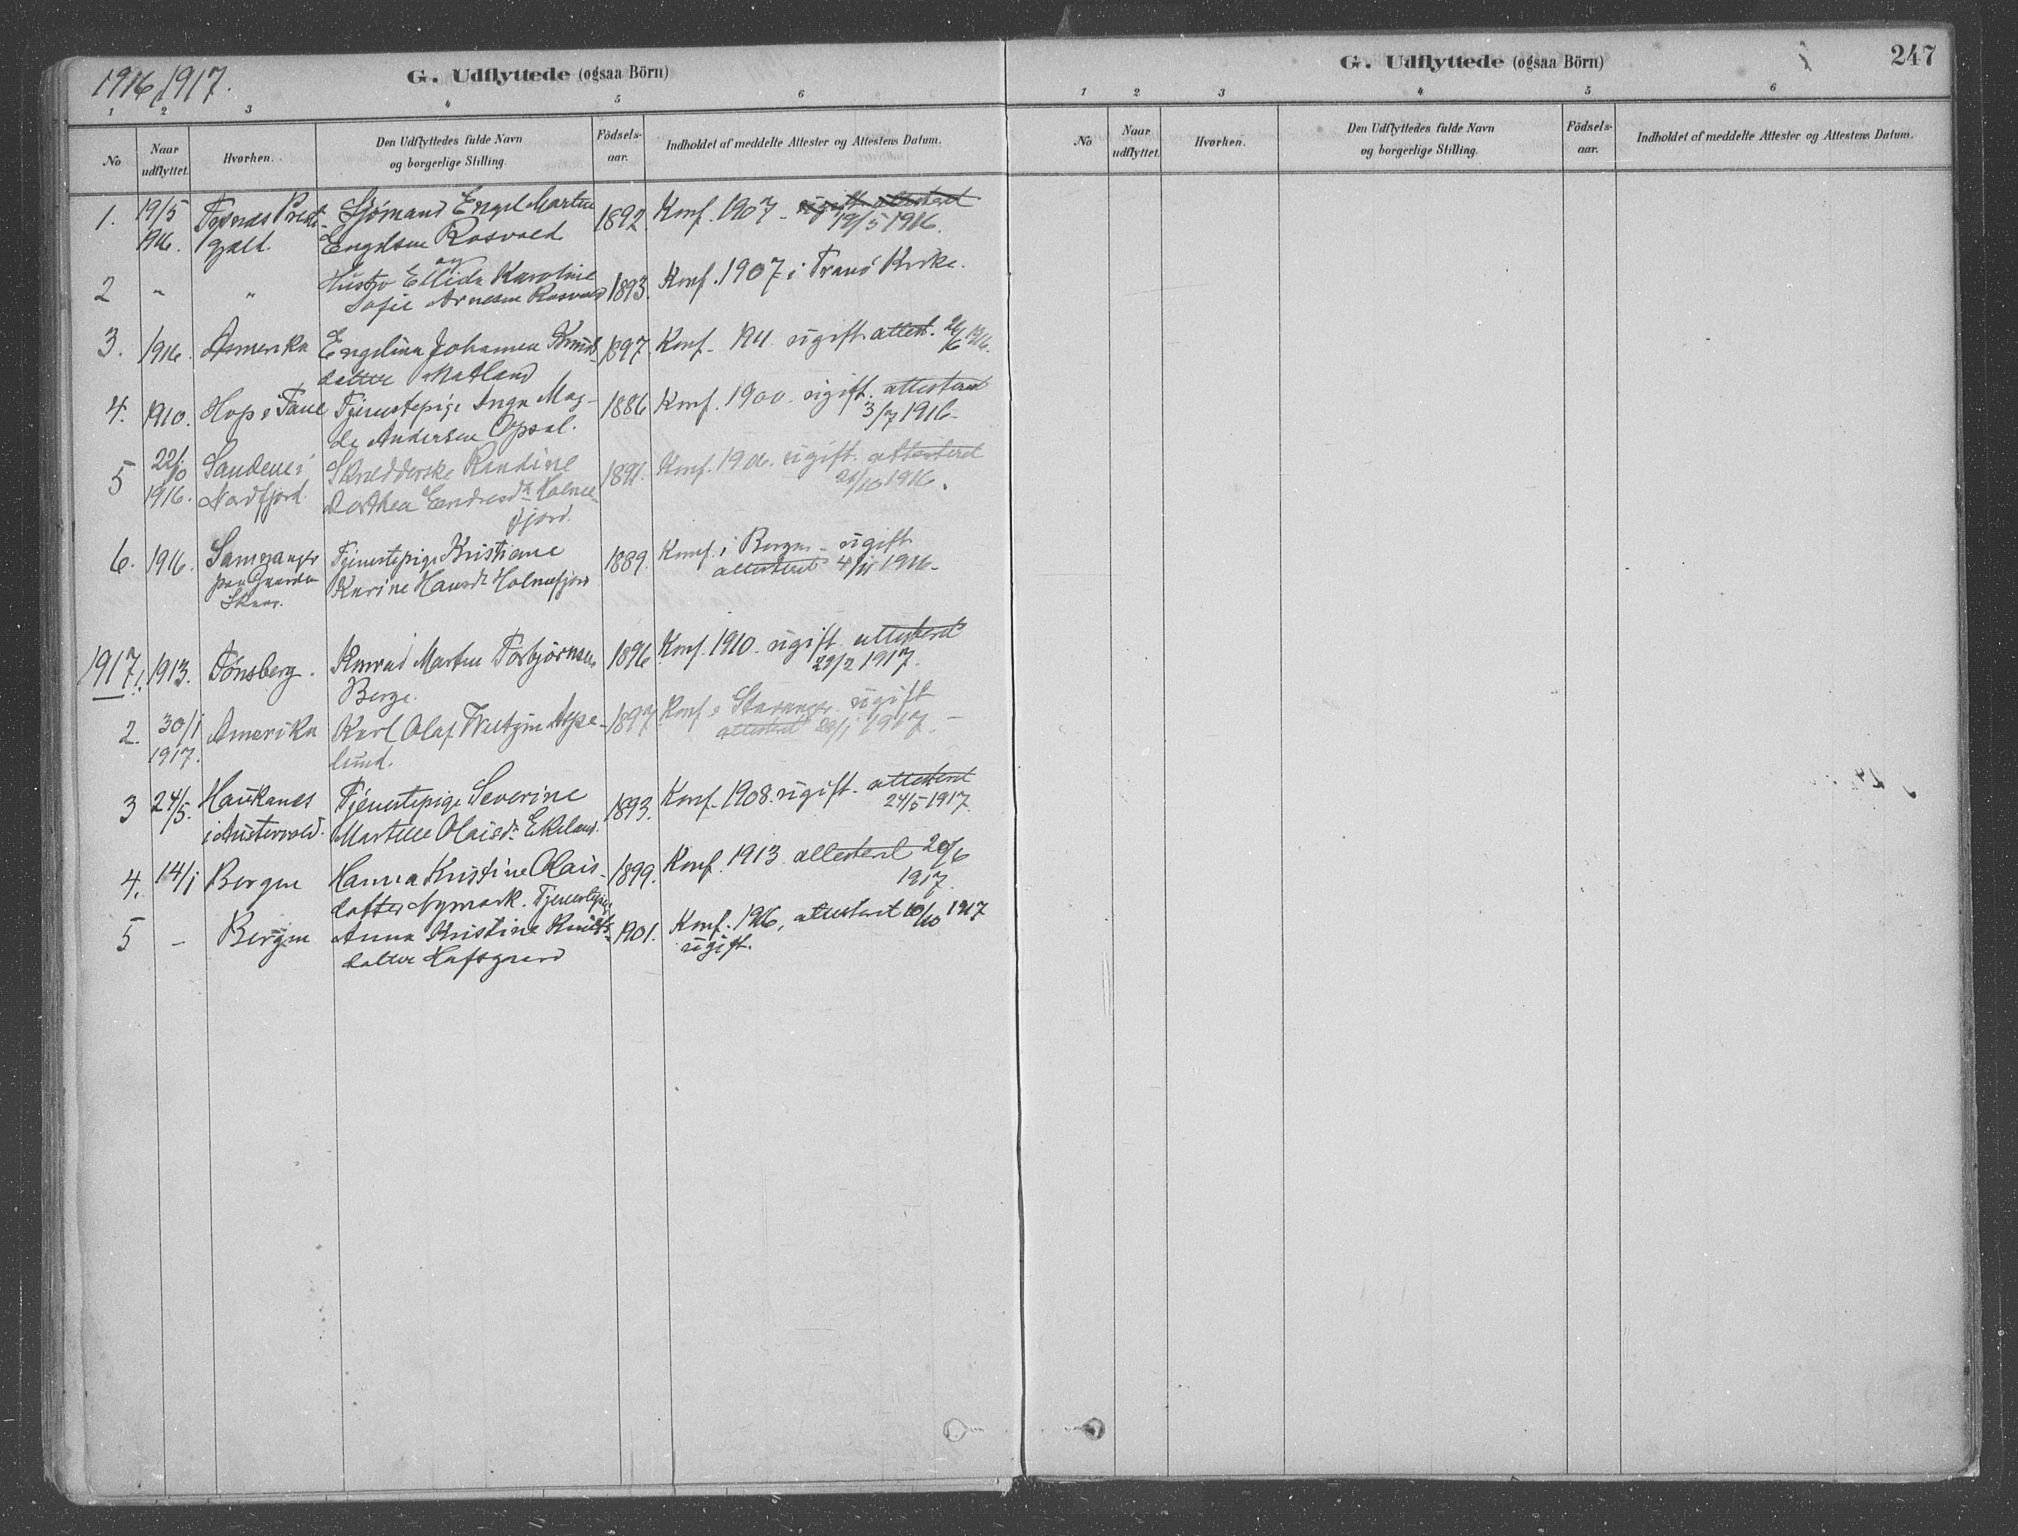 1916, 1917.
G. Udflyttede (ogsaa Börn)
1 2 3 4 5 6
No
Naar udflyttet.
Hvorhen.
Den Udflyttedes fulde Navn og borgerlige Stilling.
Födsels-aar.
Indholdet af meddelte Attester og Attestens Datum.
1. 19/5 1916. Tysnæs Prest- Sjømand Engel Martin 1892 Konf. 1907 - ugift attesteret
gjæld. Engelsen Rosvold 19/5 1916.
og
2 " " Hustro Ellida Karoline 1893. Konf. 1907 i Tranö Kirke.
Sofie Arnesen Rosvold
3. 1916. Amerika Engelina Johanna Knuds- 1897. Konf. 1911 ugift attest. 26/6 1916.
datter Matland
4. 1910. Hop i Fane Tjenestepige Inga Mag- 1886 Konf. 1900. ugift. attesteret
da Andersen Opsal. 3/7 1916.
5 22/10 Sandene i Skrædderske Randine 1891. Konf. 1906. ugift. attesteret
1916. Nordfjord. Dorthea Endresdr Holme- 21/10 1916.
fjord.
6. 1916. Samnanger Tjenestepige Kristiane 1889. Konf. i Bergen - ugift
paa Gaarden Karine Hansdr Holmefjord attesteret 4/11 1916.
Skaar.
1917 1. 1913. Tönsberg. Konrad Martin Torbjørnsen 1896 Konf. 1910. ugift. attesteret
Berge. 29/2 1917.
2. 30/1 Amerika Karl Olaf Aspe- 1897 Konf. i Stavanger. ugift
1917. lund. attesteret 1917.
3 24/5. Haukanes Tjenestepige Severine 1893. Konf. 1908. ugift. attesteret
i Austevold. Martelle Olaisdr Ekeland. 24/5 1917.
4. 14/1 Bergen Hanna Kristine Olais- 1899. Konf. 1913. attesteret 20/6
datter Nymark. Tjenestepige 1917.
5 - Bergen Anna Kristine Knuds- 1901. Konf. 1916, attesteret 10/10 1917
datter Hafsgaard ugift.
G. Udflyttede (ogsaa Börn)
247
1 2 3 4 5 6
No
Naar udflyttet.
Hvorhen.
Den Udflyttedes fulde Navn og borgerlige Stilling.
Födsels-aar.
Indholdet af meddelte Attester og Attestens Datum.